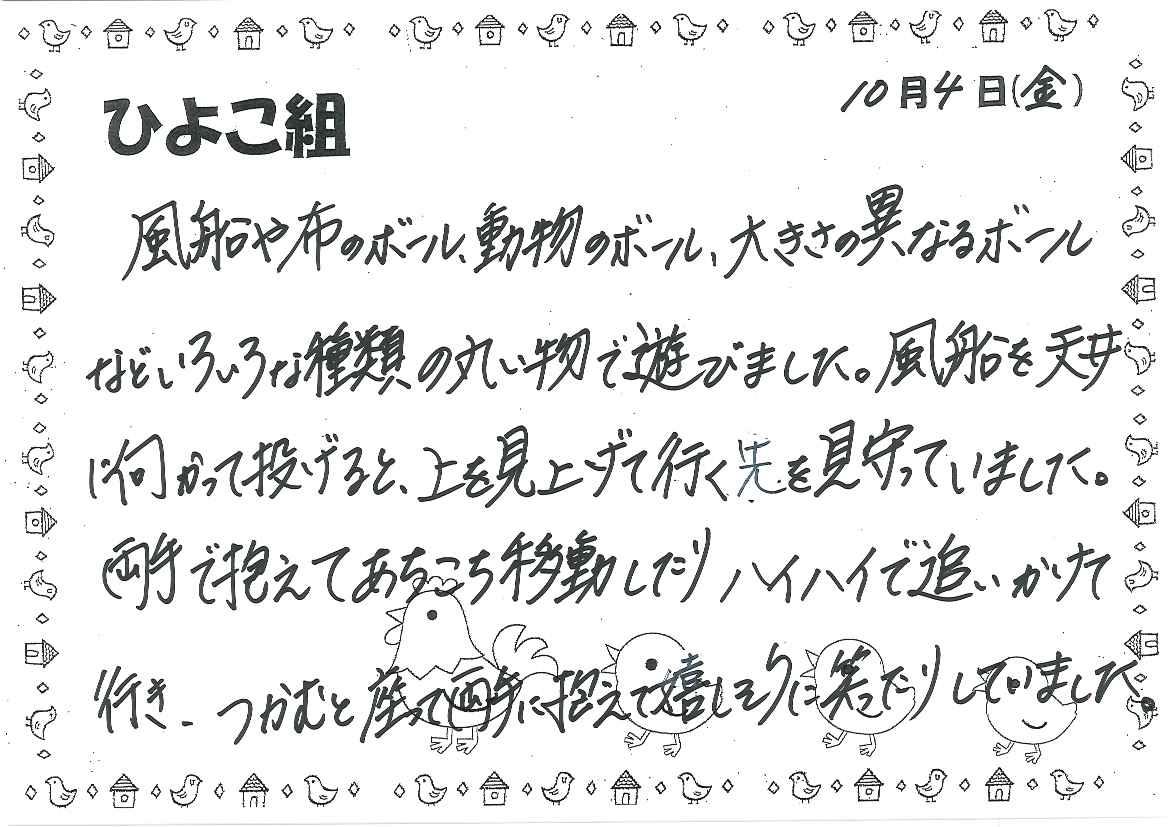 ひよこ組
10月4日(金)
風船や布のボール、動物のボール、大きさの異なるボール
などいろいろな種類の丸い物で遊びました。風船を天井
に向かって投げると、上を見上げて行く先を見守っていました。
両手で抱えてあちこち移動したりハイハイで追いかけて
行き、つかむと座って両手に抱えて嬉しそうに笑ったりしていました。